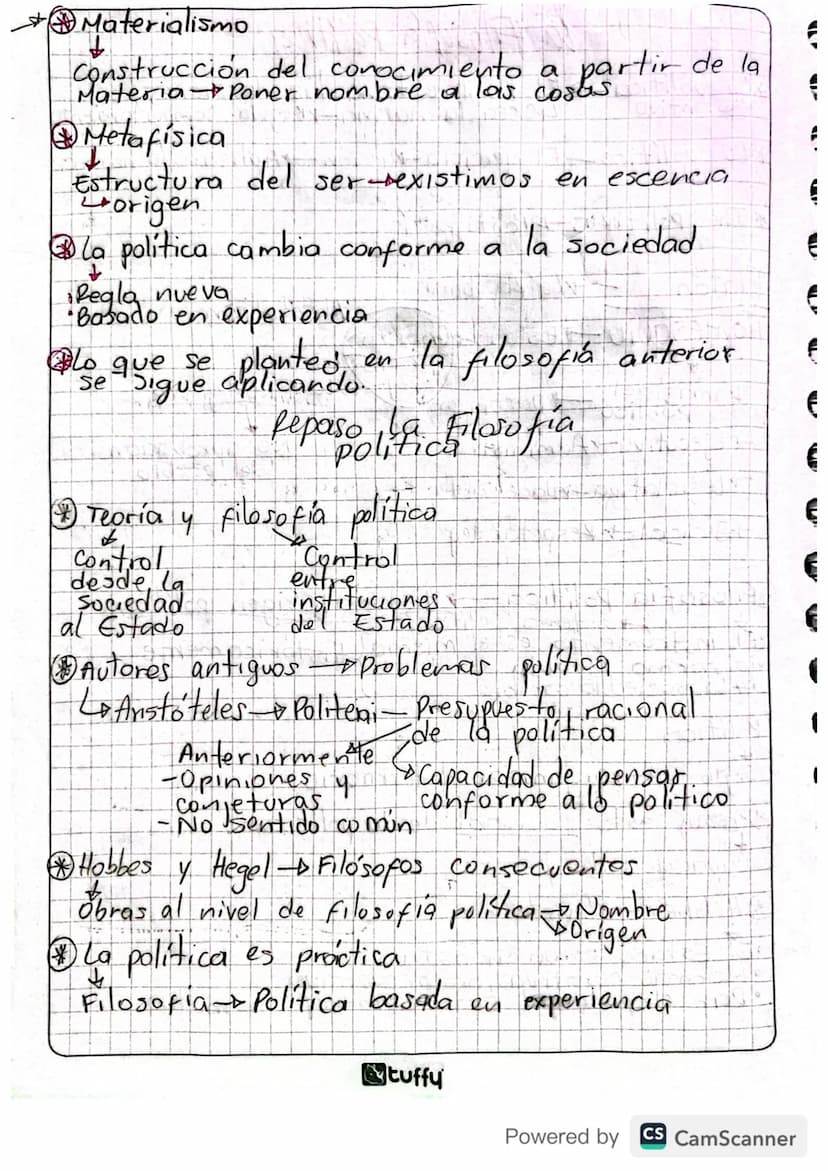 Materialismo
Construcción del conocimiento a partir de la
Materia → Poner nombre a las cosas
Metafísica
Estructura del ser → existimos en escencia
↳ origen
La política cambia conforme a la sociedad
Regla nueva
Basado en experiencia
Lo que se planteó en la filosofía anterior
se sigue aplicando.
Repaso La Filosofía
política
Teoría y filosofía política
Control
desde la
sociedad
al Estado
Control
entre
instituciones
del Estado
Autores antiguos → Problemas política
↳ Aristóteles → Politeai — Presupuesto racional
de la política
Anteriormente
- Opiniones y
conjeturas
- No sentido común
Capacidad de pensar
conforme a lo político
Hobbes y Hegel → Filósofos consecuentes
Obras al nivel de filosofía política → Nombre
Origen
La política es práctica
Filosofía → Política basada en experiencia
tuffy
Powered by CS CamScanner